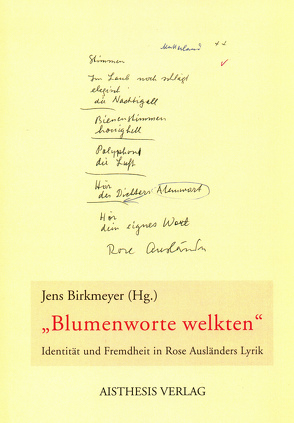 Mutterland
Stimmen
Im Laub noch schlägt
elegisch
die Nachtigall
Bienenstimmen
honighell
Polyphon
die Luft
Hör
des Dichters Atemwort
Hör
dein eignes Wort
Rose Ausländer
Jens Birkmeyer (Hg.)
„Blumenworte welkten“
Identität und Fremdheit in Rose Ausländers Lyrik
AISTHESIS VERLAG